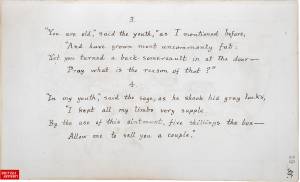 3.
"You are old," said the youth, "as I mentioned before,
"And have grown most uncommonly fat:
Yet you turned a back somersault in at the door—
Pray what is the reason of that?"
4.
"In my youth," said the sage, as he shook his gray locks,
"I kept all my limbs very supple
By the use of this ointment, five shillings the box—
Allow me to sell you a couple."
BRITISH
LIBRARY